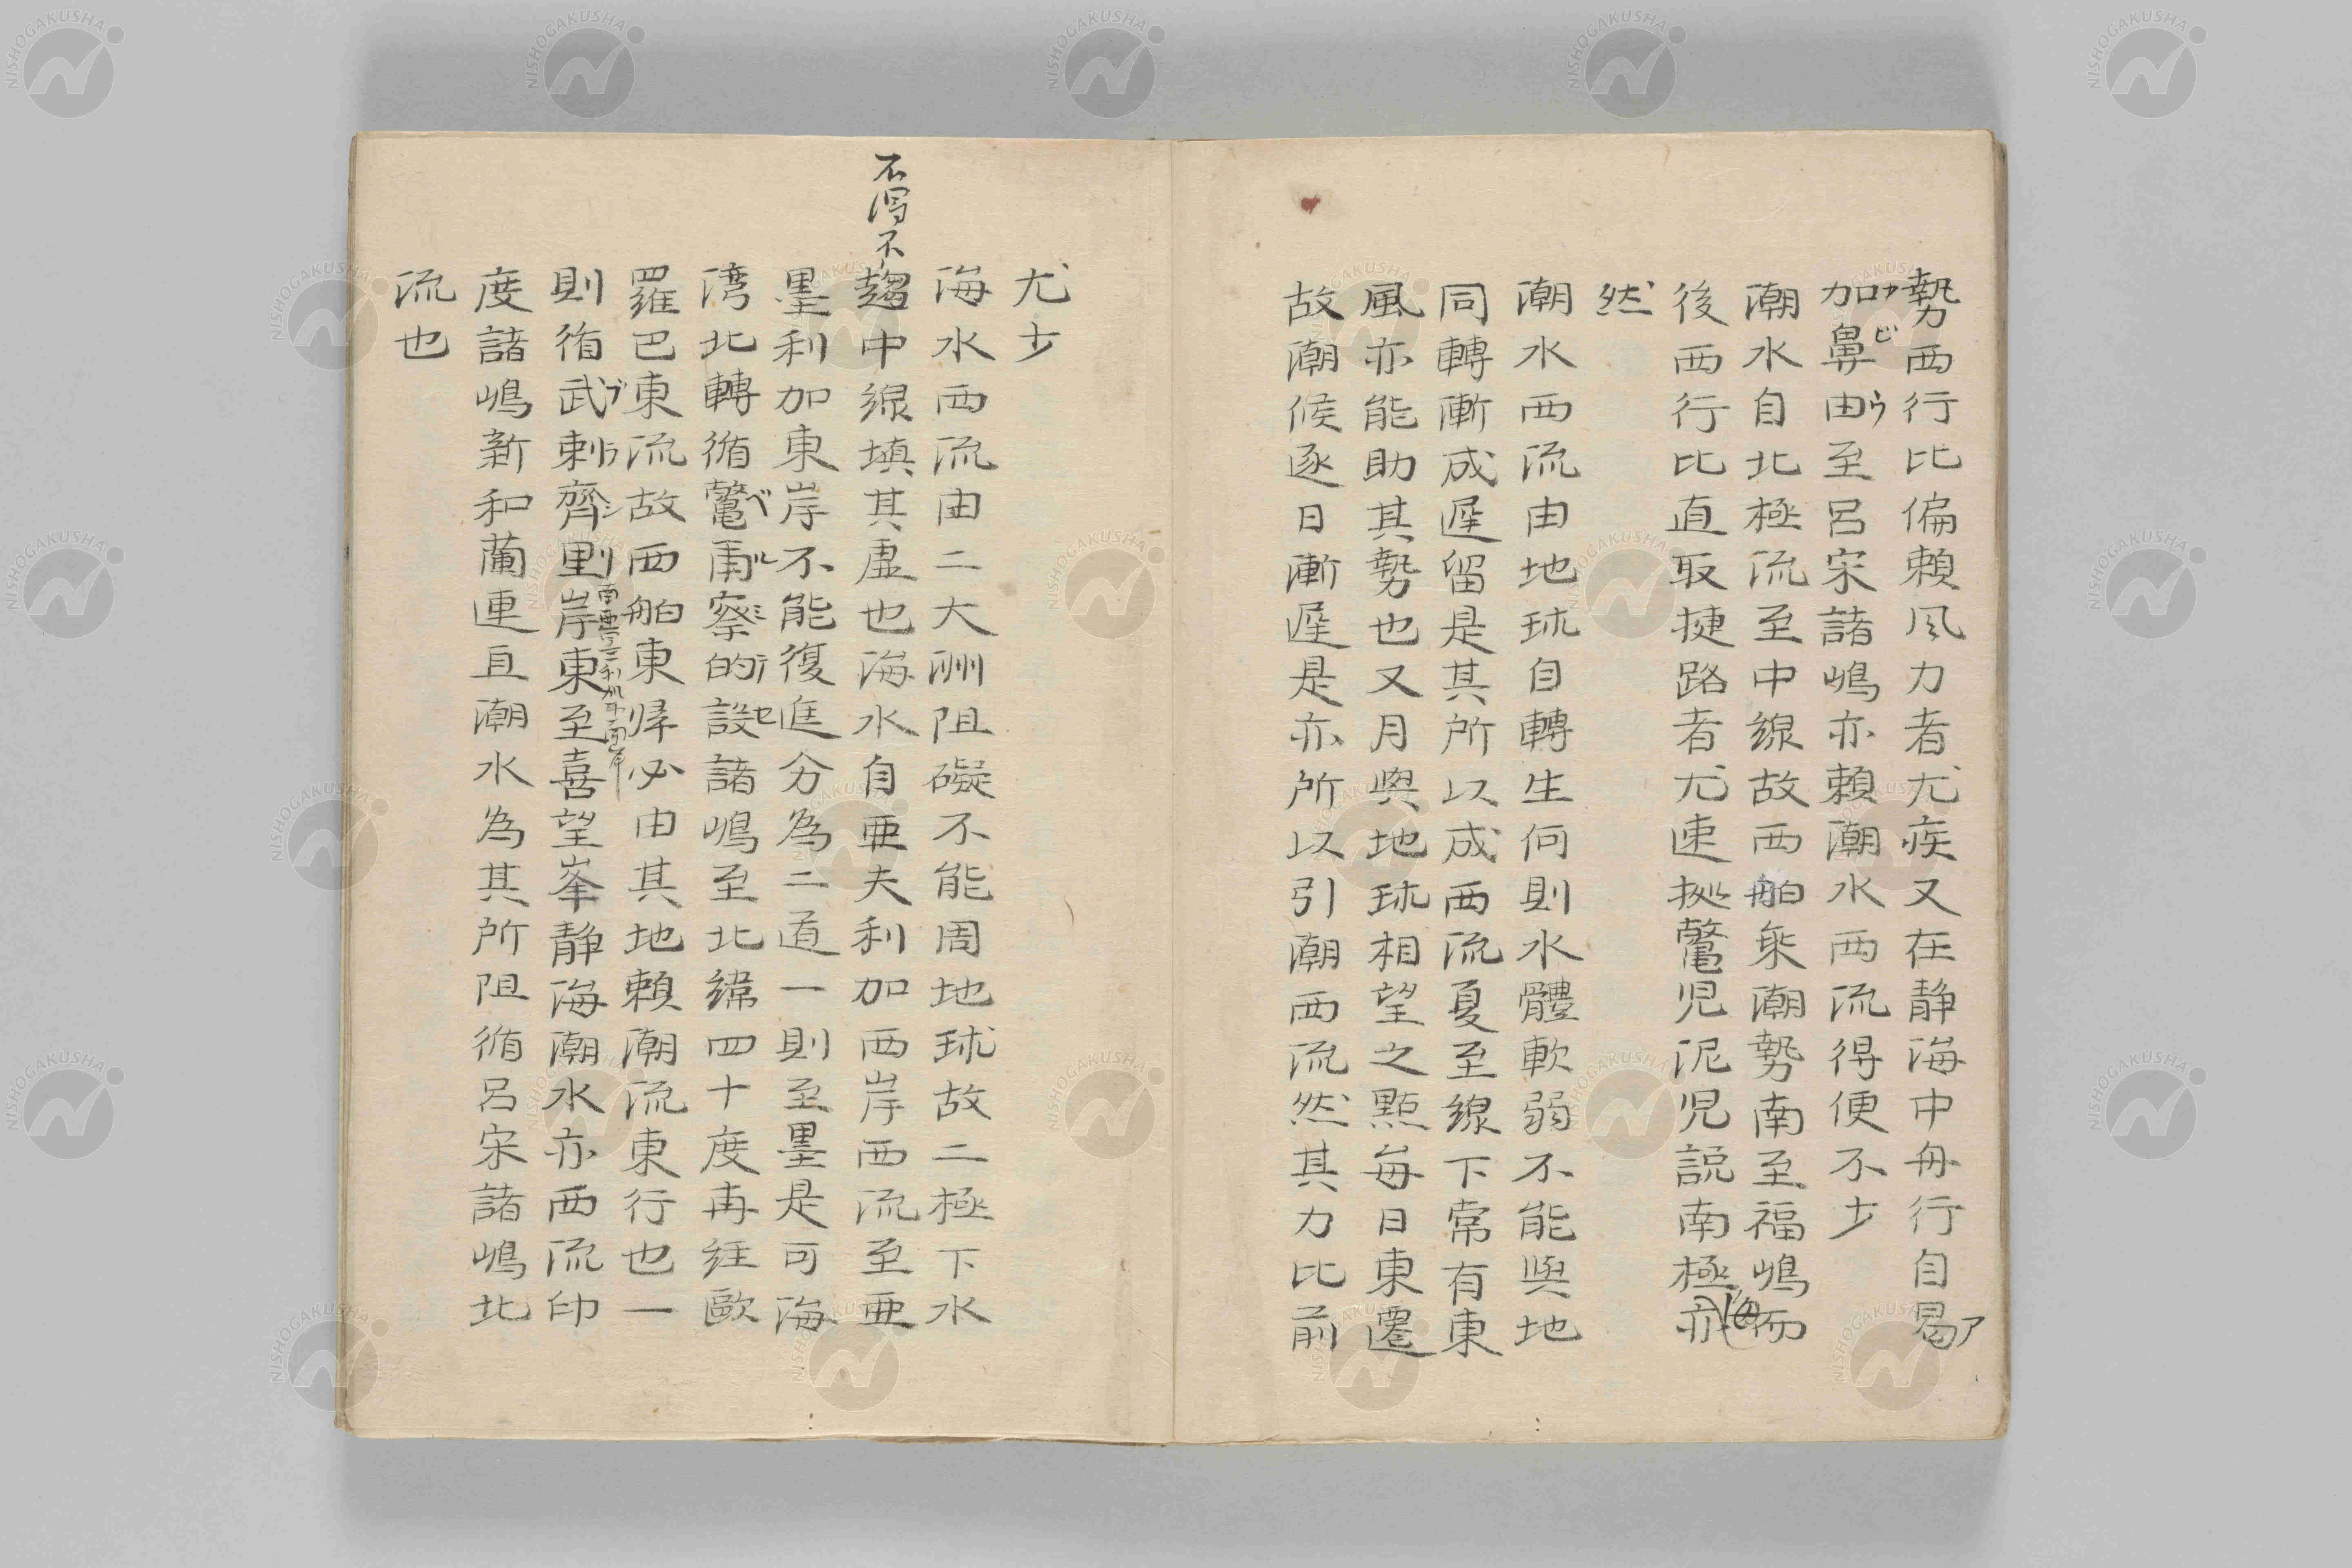 勢西行比偏頼風力者尤疾又在静海中舟行自昜ア
加カ鼻ビ由ウ至呂宋諸嶋亦頼潮水西流得便不少
潮水自北極流至中線故西舶乗潮勢南至福嶋而
後西行比直取捷路者尤速拠鼈児泥児説南極亦
然
潮水西流由地球自轉生何則水體軟弱不能與地
同轉漸成遅留是其所以成西流夏至線下常有東
風亦能助其勢也又月與地球相望之點毎日東遷
故潮候逐日漸遅是亦所以引潮西流然其力比前
尤少
海水西流由二大洲阻礙不能周地球故二極下水
趨中線填其虚也海水自亜夫利加西岸西流至亜
不瀉不
墨利加東岸不能復進分為二道一則至墨是可海
湾北轉循鼈ベ爾ル察ミ的テ設セ諸嶋至北緯四十度再経歐
羅巴東流故西舶東帰必由其地頼潮流東行也一
則循武ブ剌ラ齊シ里リ岸東至喜望峯静海潮水亦西流印
南亜墨利加耳西岸
度諸嶋新和蘭連亘潮水為其所阻循呂宋諸嶋北
流也
NISHOGAKUSHA